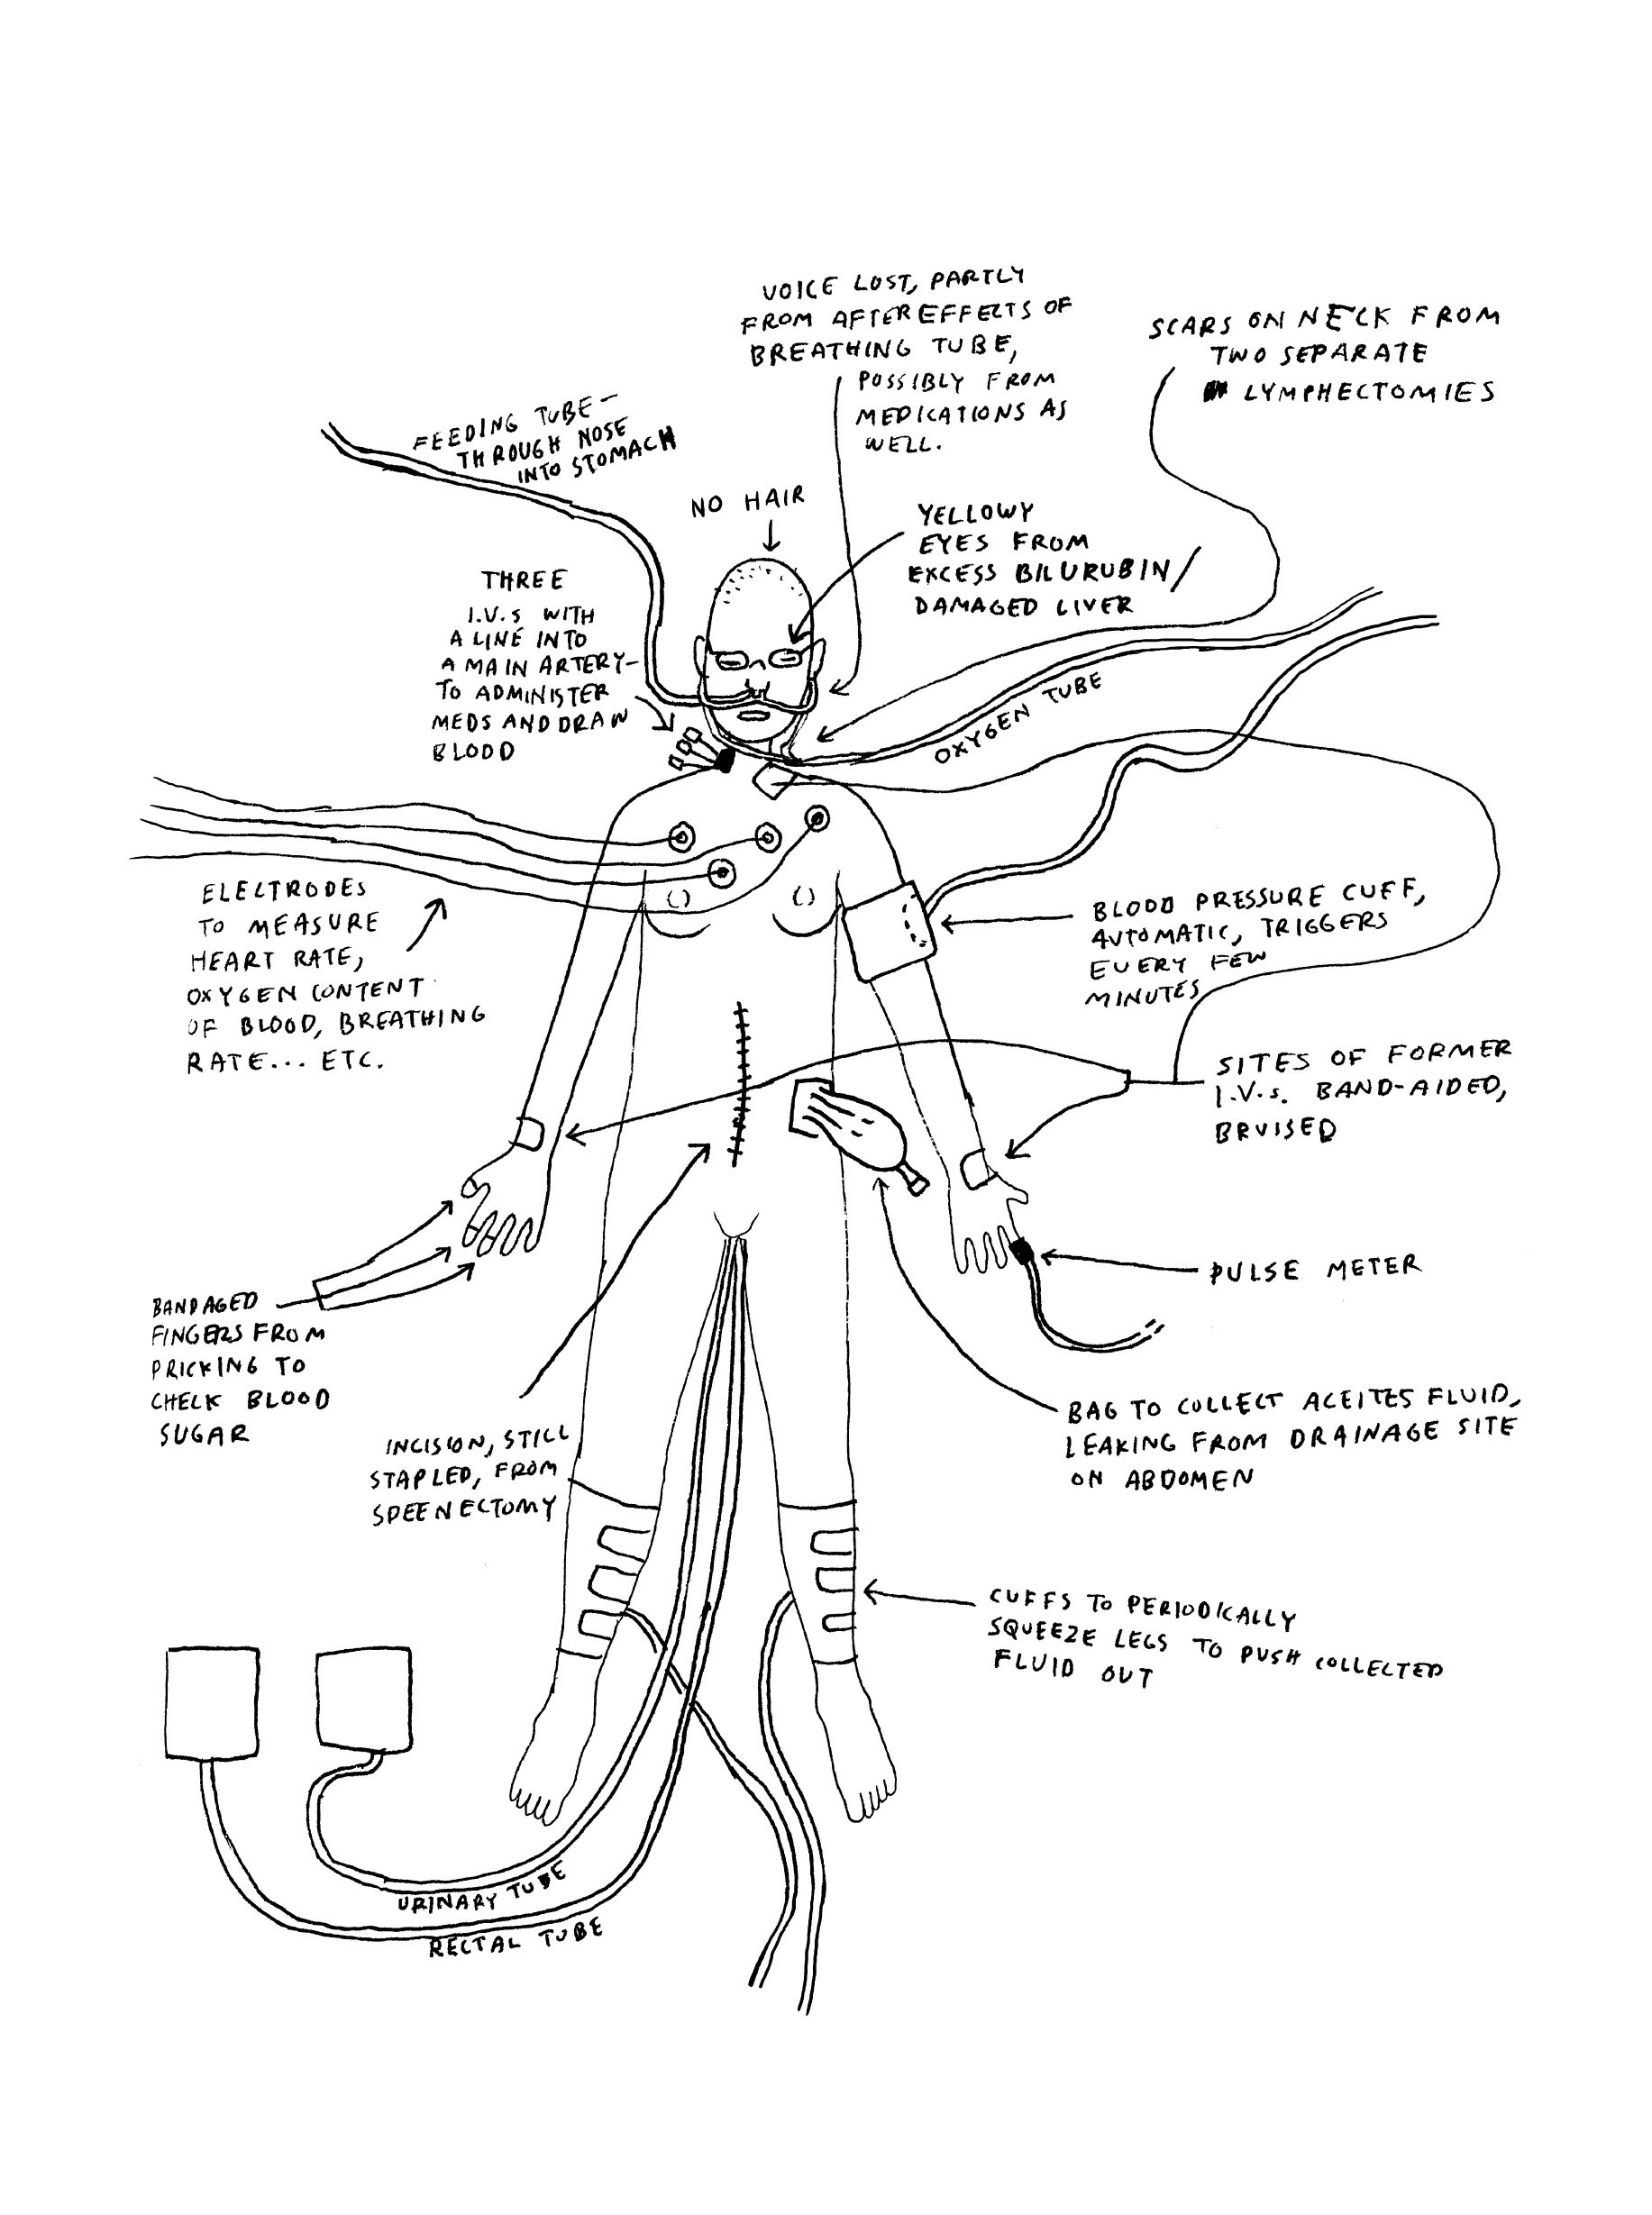 VOICE LOST, PARTLY
FROM AFTEREFFECTS OF
BREATHING TUBE,
POSSIBLY FROM
MEDICATIONS AS
WELL.
SCARS ON NECK FROM
TWO SEPARATE
LYMPHECTOMIES
FEEDING TUBE-
THROUGH NOSE
INTO STOMACH
NO HAIR
YELLOWY
EYES FROM
EXCESS BILURUBIN/
DAMAGED LIVER
THREE
I.V.s WITH
A LINE INTO
A MAIN ARTERY-
TO ADMINISTER
MEDS AND DRAW
BLOOD
OXYGEN TUBE
ELECTRODES
TO MEASURE
HEART RATE,
OXYGEN CONTENT
OF BLOOD, BREATHING
RATE... ETC.
BLOOD PRESSURE CUFF,
AUTOMATIC, TRIGGERS
EVERY FEW
MINUTES
SITES OF FORMER
I.V.s. BAND-AIDED,
BRUISED
PULSE METER
BANDAGED
FINGERS FROM
PRICKING TO
CHECK BLOOD
SUGAR
INCISION, STILL
STAPLED, FROM
SPEENECTOMY
BAG TO COLLECT ACEITES FLUID,
LEAKING FROM DRAINAGE SITE
ON ABDOMEN
CUFFS TO PERIODICALLY
SQUEEZE LEGS TO PUSH COLLECTED
FLUID OUT
URINARY TUBE
RECTAL TUBE